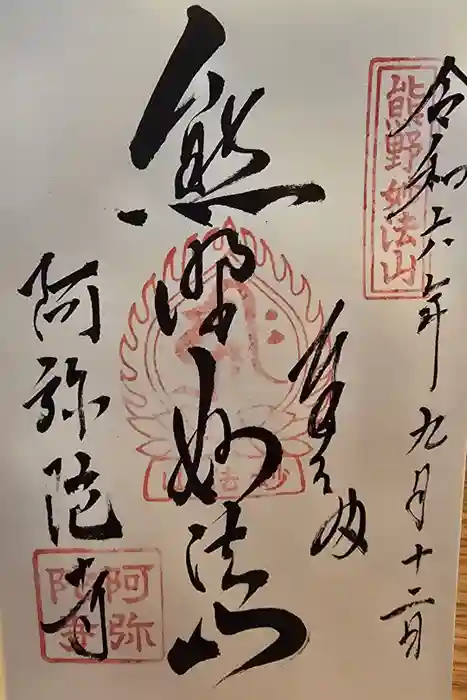 令和六年九月十二日
熊野妙法山
奉拝
熊野妙法山
阿弥陀寺
阿弥陀寺